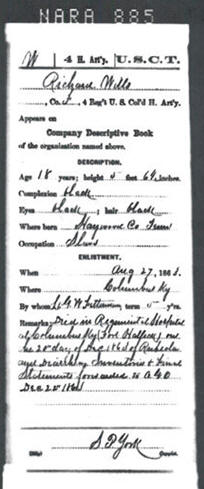 NARA 885
W | 4 H. Art'y. | U.S.C.T.
Richard Wills
, Co. , 4 Reg't U. S. Col'd H. Art'y.
Appears on
Company Descriptive Book
of the organization named above.
DESCRIPTION.
Age 18 years; height 5 feet 6½ inches.
Complexion black
Eyes black ; hair black
Where born Haywood Co Tenn
Occupation Slave
ENLISTMENT.
When Aug 27, 1863.
Where Columbus Ky
By whom Lt G W ; term y'rs.
Remarks: Died in Regimental Hospital
at Columbus Ky (Fort Halleck) on
the 28 day of Dec 186 of
and Inventory & Final
Statements forwarded to A G O
Dec 28 186
S. D. York
Copyist.